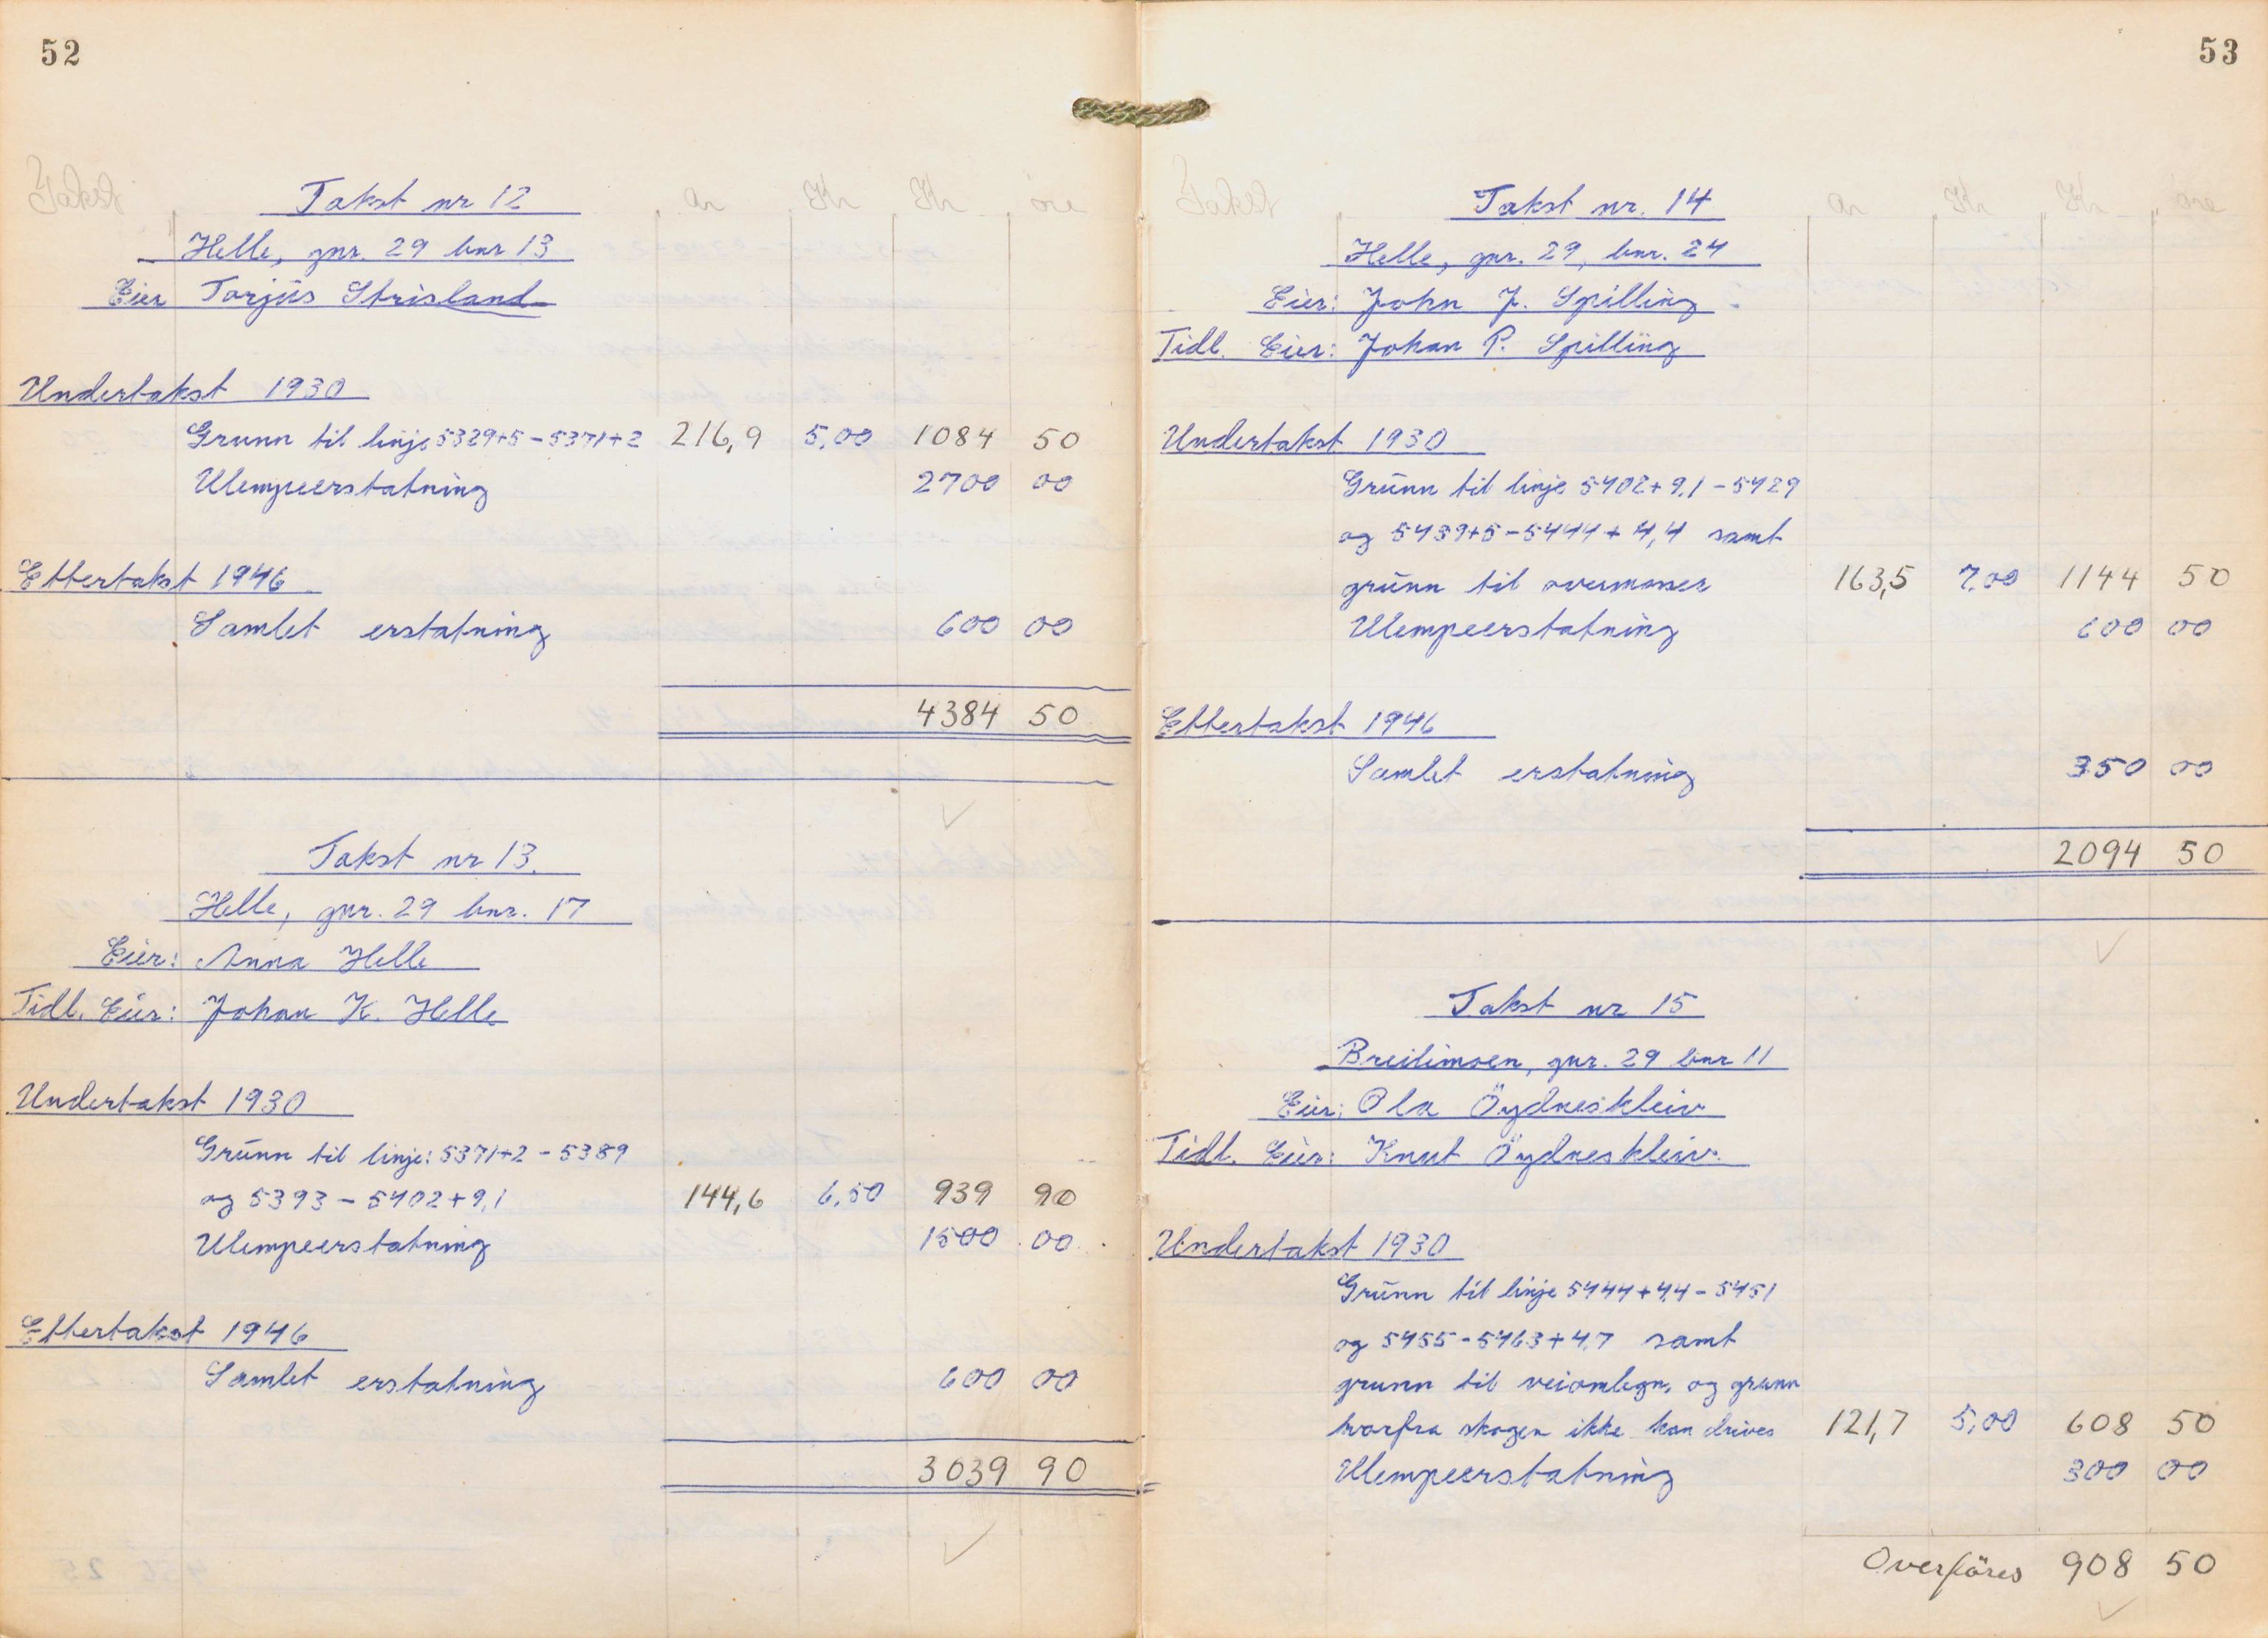 52
Takst ar Kr Kr øre
Takst nr 12
Helle, gnr. 29 bnr 13
Eier Torjus Strisland
Undertakst 1930
Grunn til linje 5329+5 - 5371+2 216,9 5,00 1084 50
Ulempeerstatning 2700 00
Ettertakst 1946
Samlet erstatning 600 00
4384 50
Takst nr 13.
Helle, gnr. 29 bnr. 17
Eier: Anna Helle
Tidl. Eier: Johan K. Helle
Undertakst 1930
Grunn til linje: 5371+2 - 5389
og 5393 - 5402+9,1 144,6 6,50 939 90
Ulempeerstatning 1500 00
Ettertakst 1946
Samlet erstatning 600 00
3039 90
53
Takst ar Kr Kr øre
Takst nr. 14
Helle, gnr. 29, bnr. 24
Eier: John J. Spilling
Tidl. Eier: Johan P. Spilling
Undertakst 1930
Grunn til linje 5402+9,1 - 5429
og 5439+5 - 5444+4,4 samt
grunn til overmasser 163,5 7,00 1144 50
Ulempeerstatning 600 00
Ettertakst 1946
Samlet erstatning 350 00
2094 50
Takst nr 15
Breilimoen, gnr. 29 bnr 11
Eier: Ola Öydneskleiv
Tidl. Eier: Knut Öydneskleiv.
Undertakst 1930
Grunn til linje 5444+4,4 - 5451
og 5455 - 5463+4,7 samt
grunn til veiomlegn. og grunn
hvorfra skogen ikke kan drives 121,7 5,00 608 50
Ulempeerstatning 300 00
Overföres 908 50